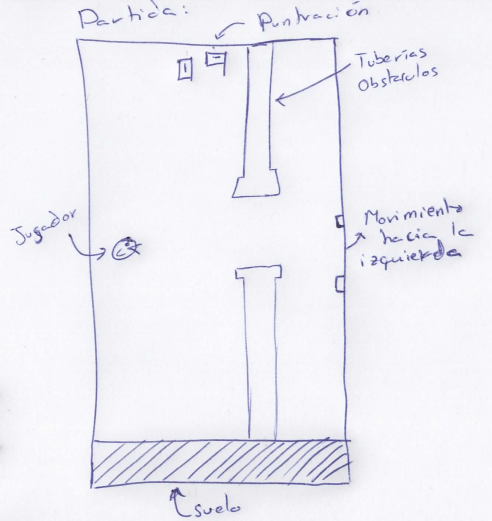 Partida:
Puntración
Tuberías
Obstarulos
Jugador
Movimiento
hacia la
izquierda
suelo